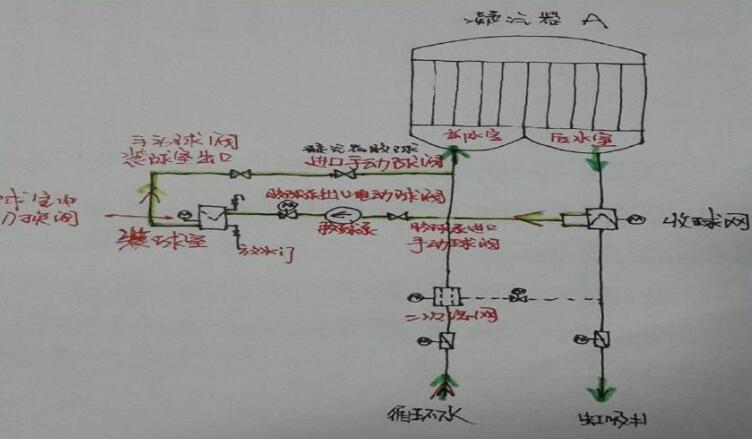 凝汽器 A
前水室
后水室
手动球阀
装球室出口
凝汽器胶球
进口手动球阀
胶球泵出口电动球阀
切换阀
装球室
放水门
胶球泵
胶球泵进口
手动球阀
收球网
二次滤网
循环水
虹吸井